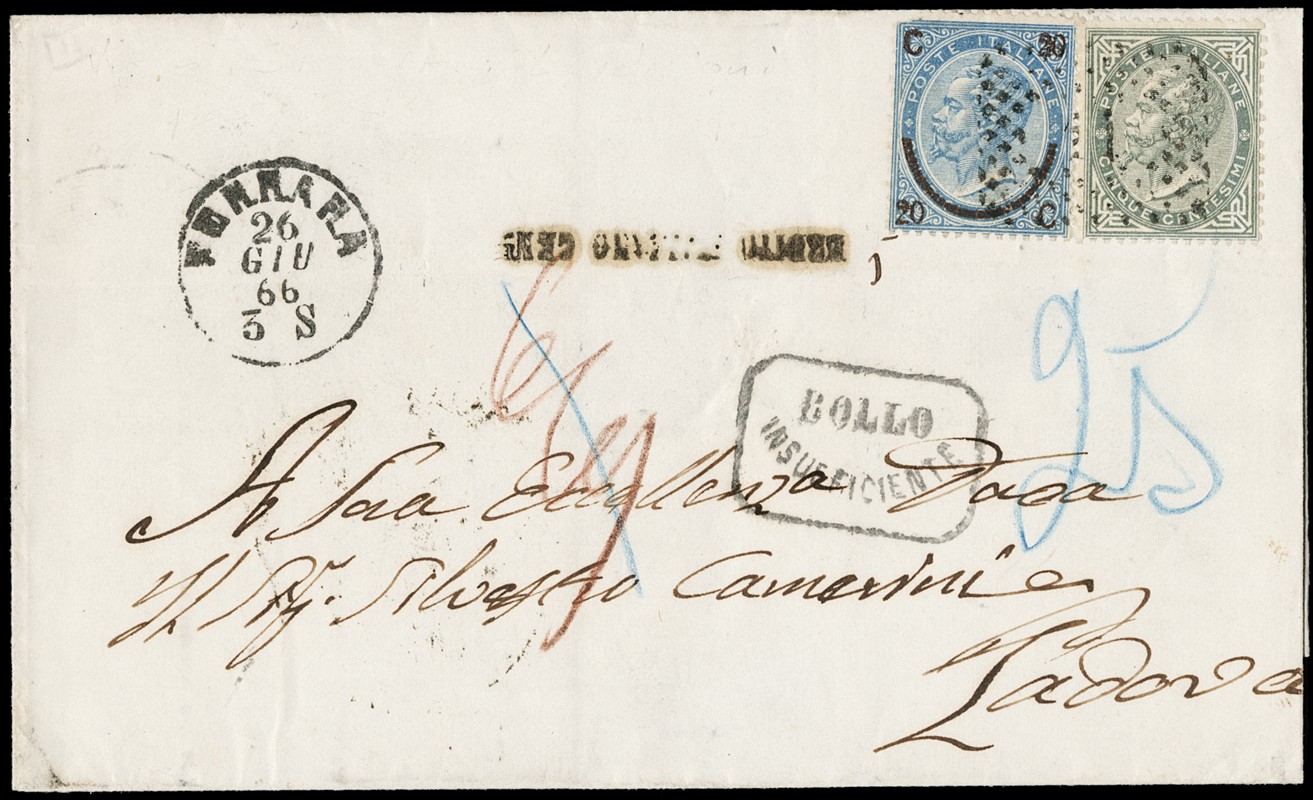 C 20
POSTE ITALIANE
20 C
POSTE ITALIANE
CINQUE CENTESIMI
FERRARA
26
GIU
66
3 S
25
BOLLO
INSUFFICIENTE
A Sua Eccellenza Duca
Silvestro Camerini
Padova